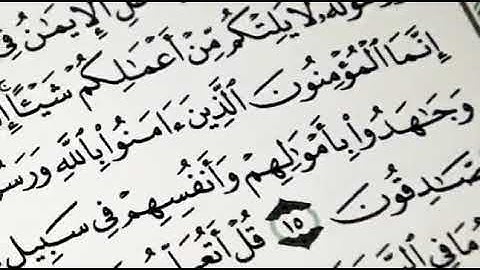 ٱلۡإِيمَٰنُ فِي
وَرَسُولَهُۥ لَا يَلِتۡكُم مِّنۡ أَعۡمَٰلِكُمۡ شَيۡـًٔاۚ
إِنَّمَا ٱلۡمُؤۡمِنُونَ ٱلَّذِينَ ءَامَنُواْ بِٱللَّهِ
وَجَٰهَدُواْ بِأَمۡوَٰلِهِمۡ وَأَنفُسِهِمۡ فِي سَبِيلِ
ٱلصَّٰدِقُونَ ١٥ قُلۡ